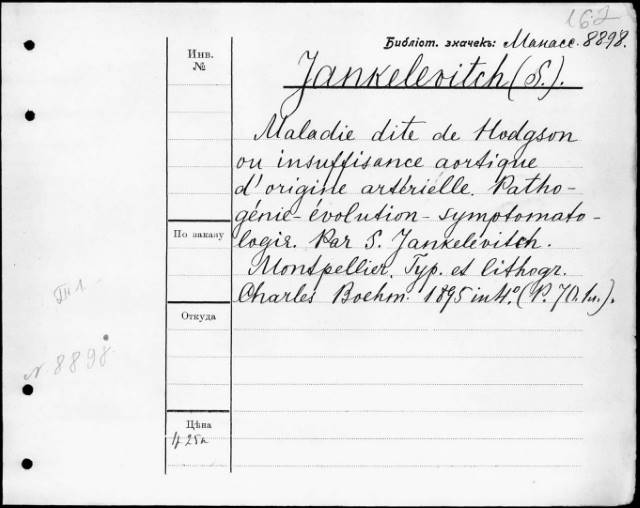 162
Библіот. значекъ: Манасс. 8898.
Инв.
№
Jankelevitch (S.).
Maladie dite de Hodgson
ou insuffisance aortique
d'origine artérielle. Patho-
génie-évolution-symptomato-
logie. Par S. Jankelevitch.
Montpellier. Typ. et lithogr.
Charles Boehm. 1895 in 4.° (P. 70.
По заказу
Откуда
№ 8898.
Цѣна